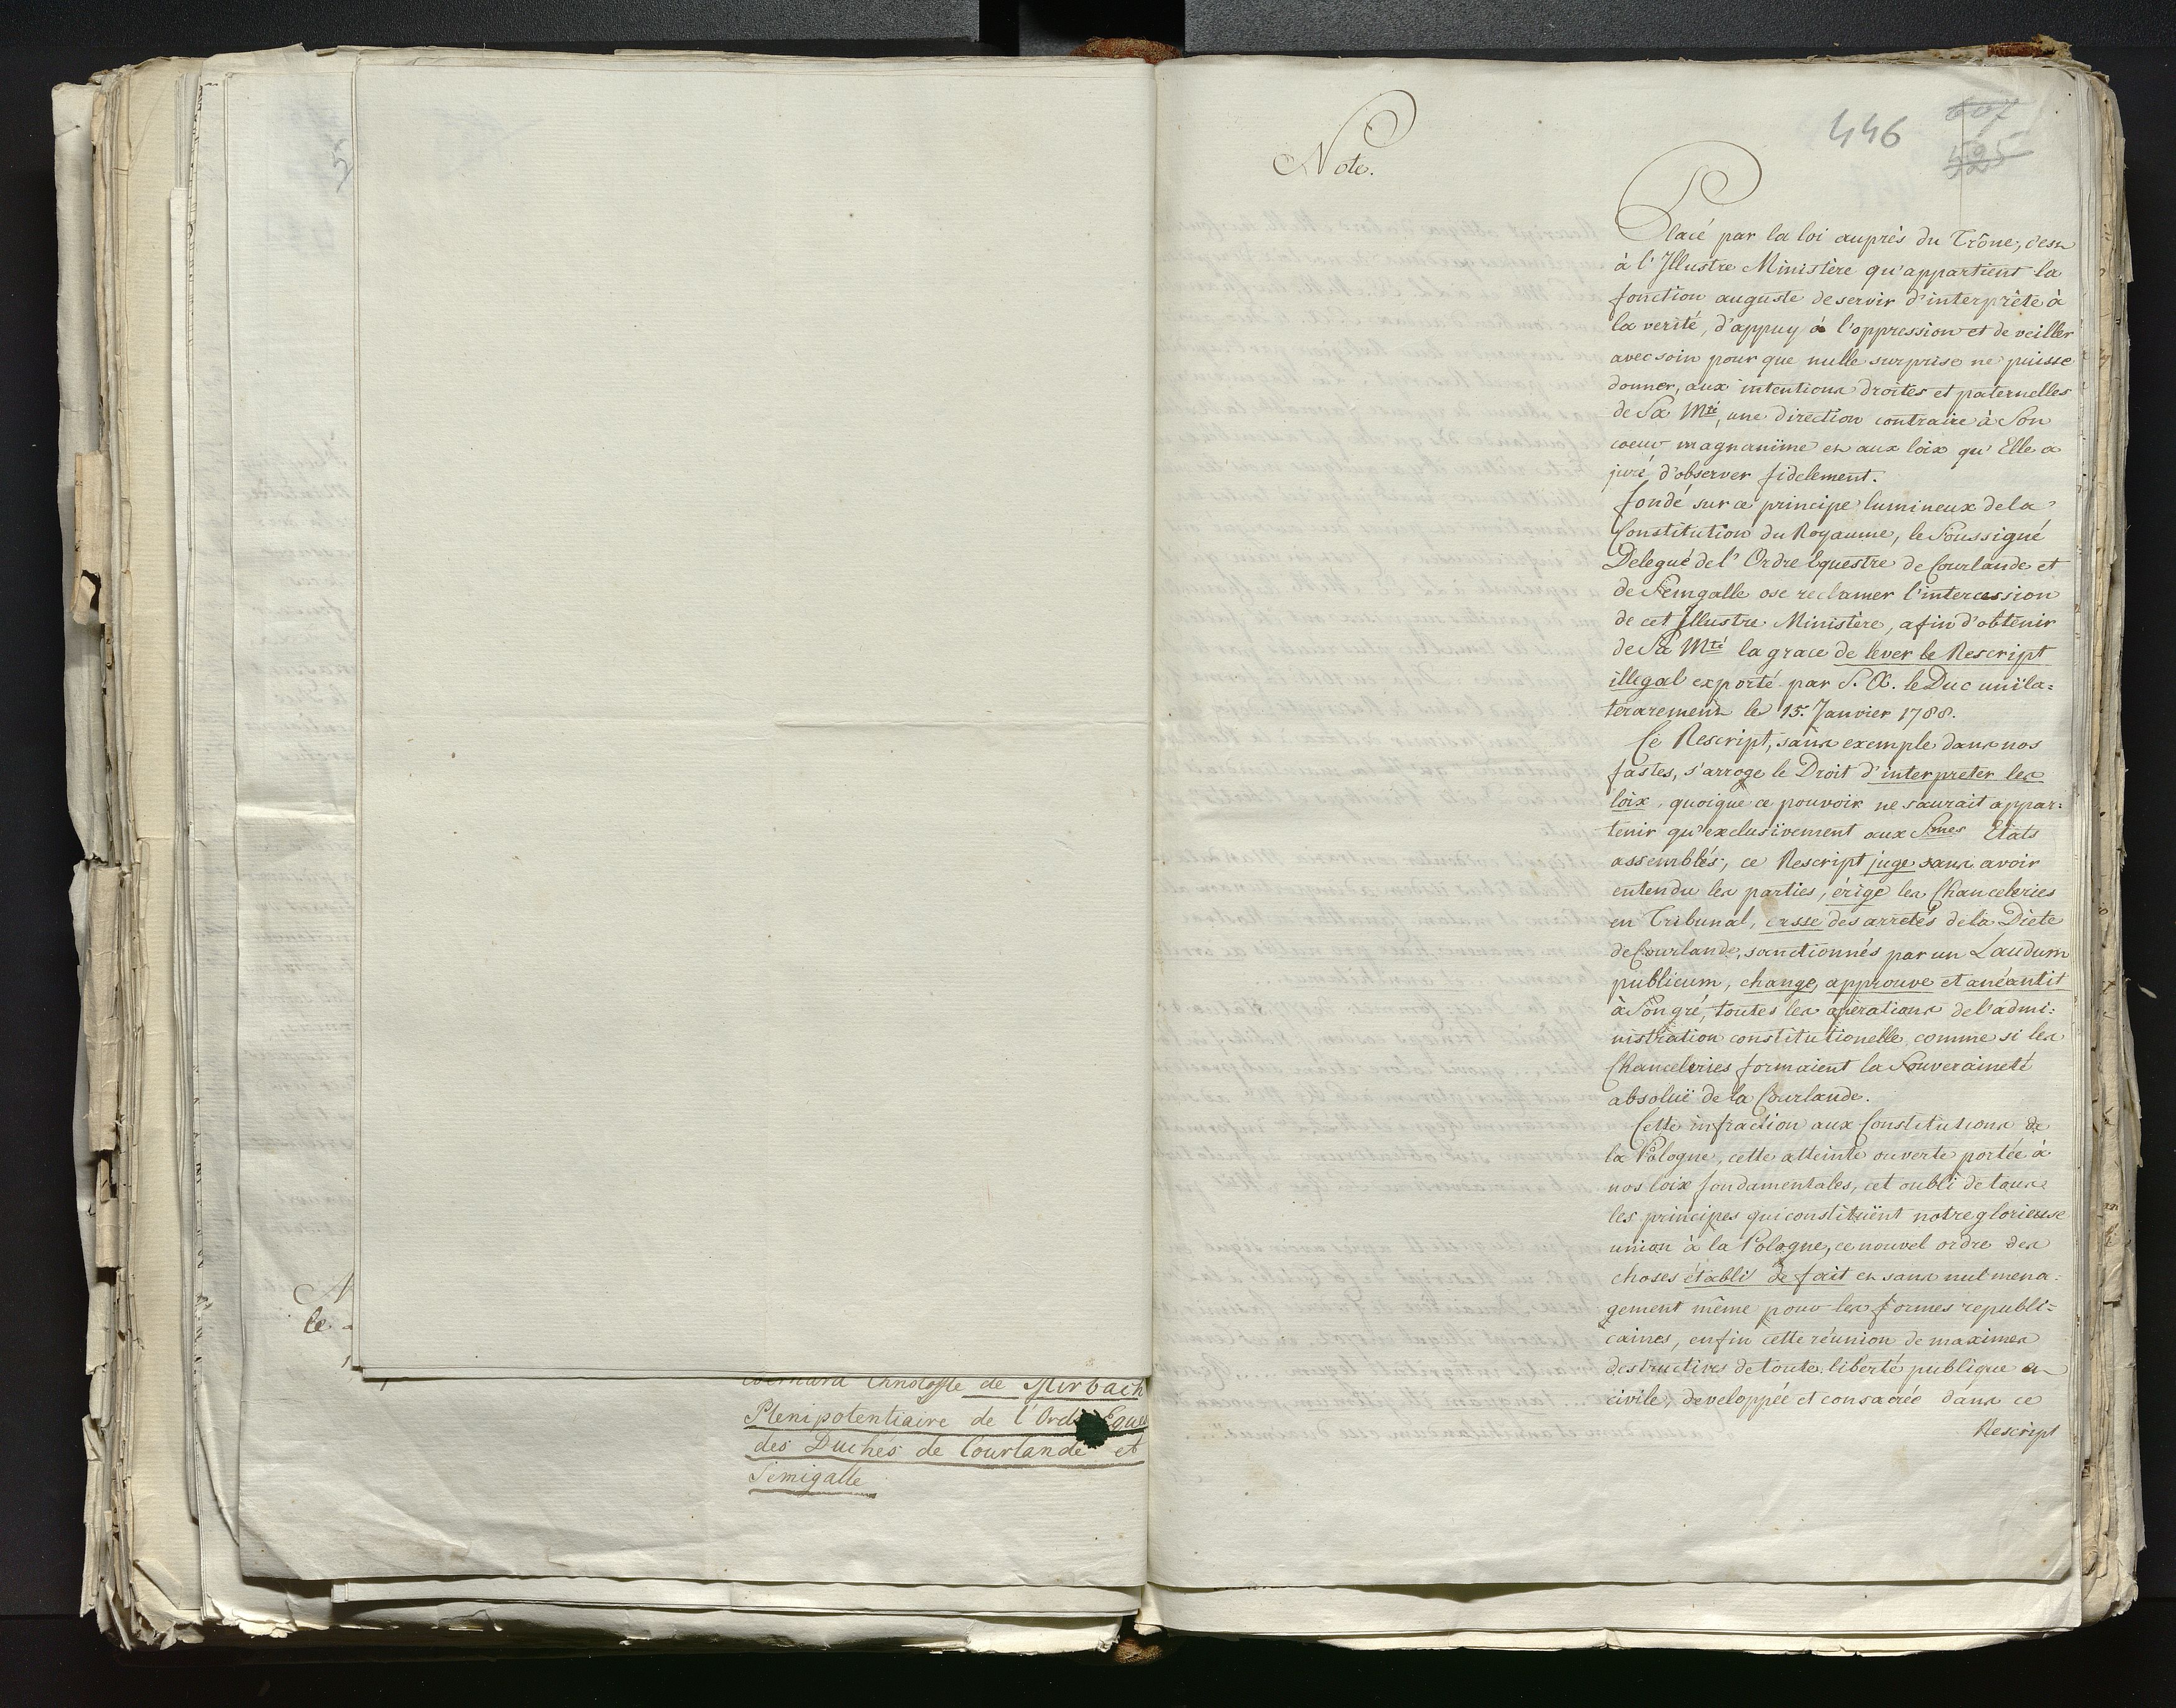 le
Bernard Christoffle de Mirbach
Plenipotentiaire de l'Ord Eques
des Duchés de Courlande et
Semigalle
446
607
525
Note.
Placé par la loi auprès du Trône, c'est
à l'Illustre Ministère qu'appartient la
fonction auguste de servir d'interprête à
la verité, d'appuy à l'oppression et de veiller
avec soin pour que nulle surprise ne puisse
donner, aux intentions droites et paternelles
de Sa Mté, une direction contraire à Son
coeur magnanime et aux loix qu'Elle a
juré d'observer fidelement.
fondé sur ce principe lumineux de la
Constitution du Royaume, le Soussigné
Delegué de l'Ordre Equestre de Courlande et
de Semgalle ose reclamer l'intercession
de cet Illustre Ministère, afin d'obtenir
de Sa Mté la grace de lever le Rescript
illegal exporté par S. A. le Duc unïla=
terarement le 15. Janvier 1788.
Ce Rescript, sans exemple dans nos
fastes, s'arroge le Droit d'interpreter les
loix, quoique ce pouvoir ne saurait appar=
tenir qu'exclusivement aux Smes Etats
assemblés, ce Rescript juge sans avoir
entendu les parties, érige les Chanceleries
en Tribunal, casse des arretés de la Diete
de Courlande, sanctionnés par un Laudum
publicum, change, approuve et anéantit
à Son gré, toutes les opérations de l'admi=
nistration constitutionelle, comme si les
Chanceleries formaient la Souveraineté
absoluë de la Courlande.
Cette infraction aux Constitutions de
la Pologne, cette atteinte ouverte portée à
nos loix fondamentales, cet oubli de tous
les principes qui constituënt notre glorieuse
union à la Pologne, ce nouvel ordre des
choses établi de fait et sans nul mena=
gement même pour les formes republi=
caines, enfin cette réunion de maximes
destructives de toute liberté publique et
civile, developpée et consacrée dans ce
Rescript